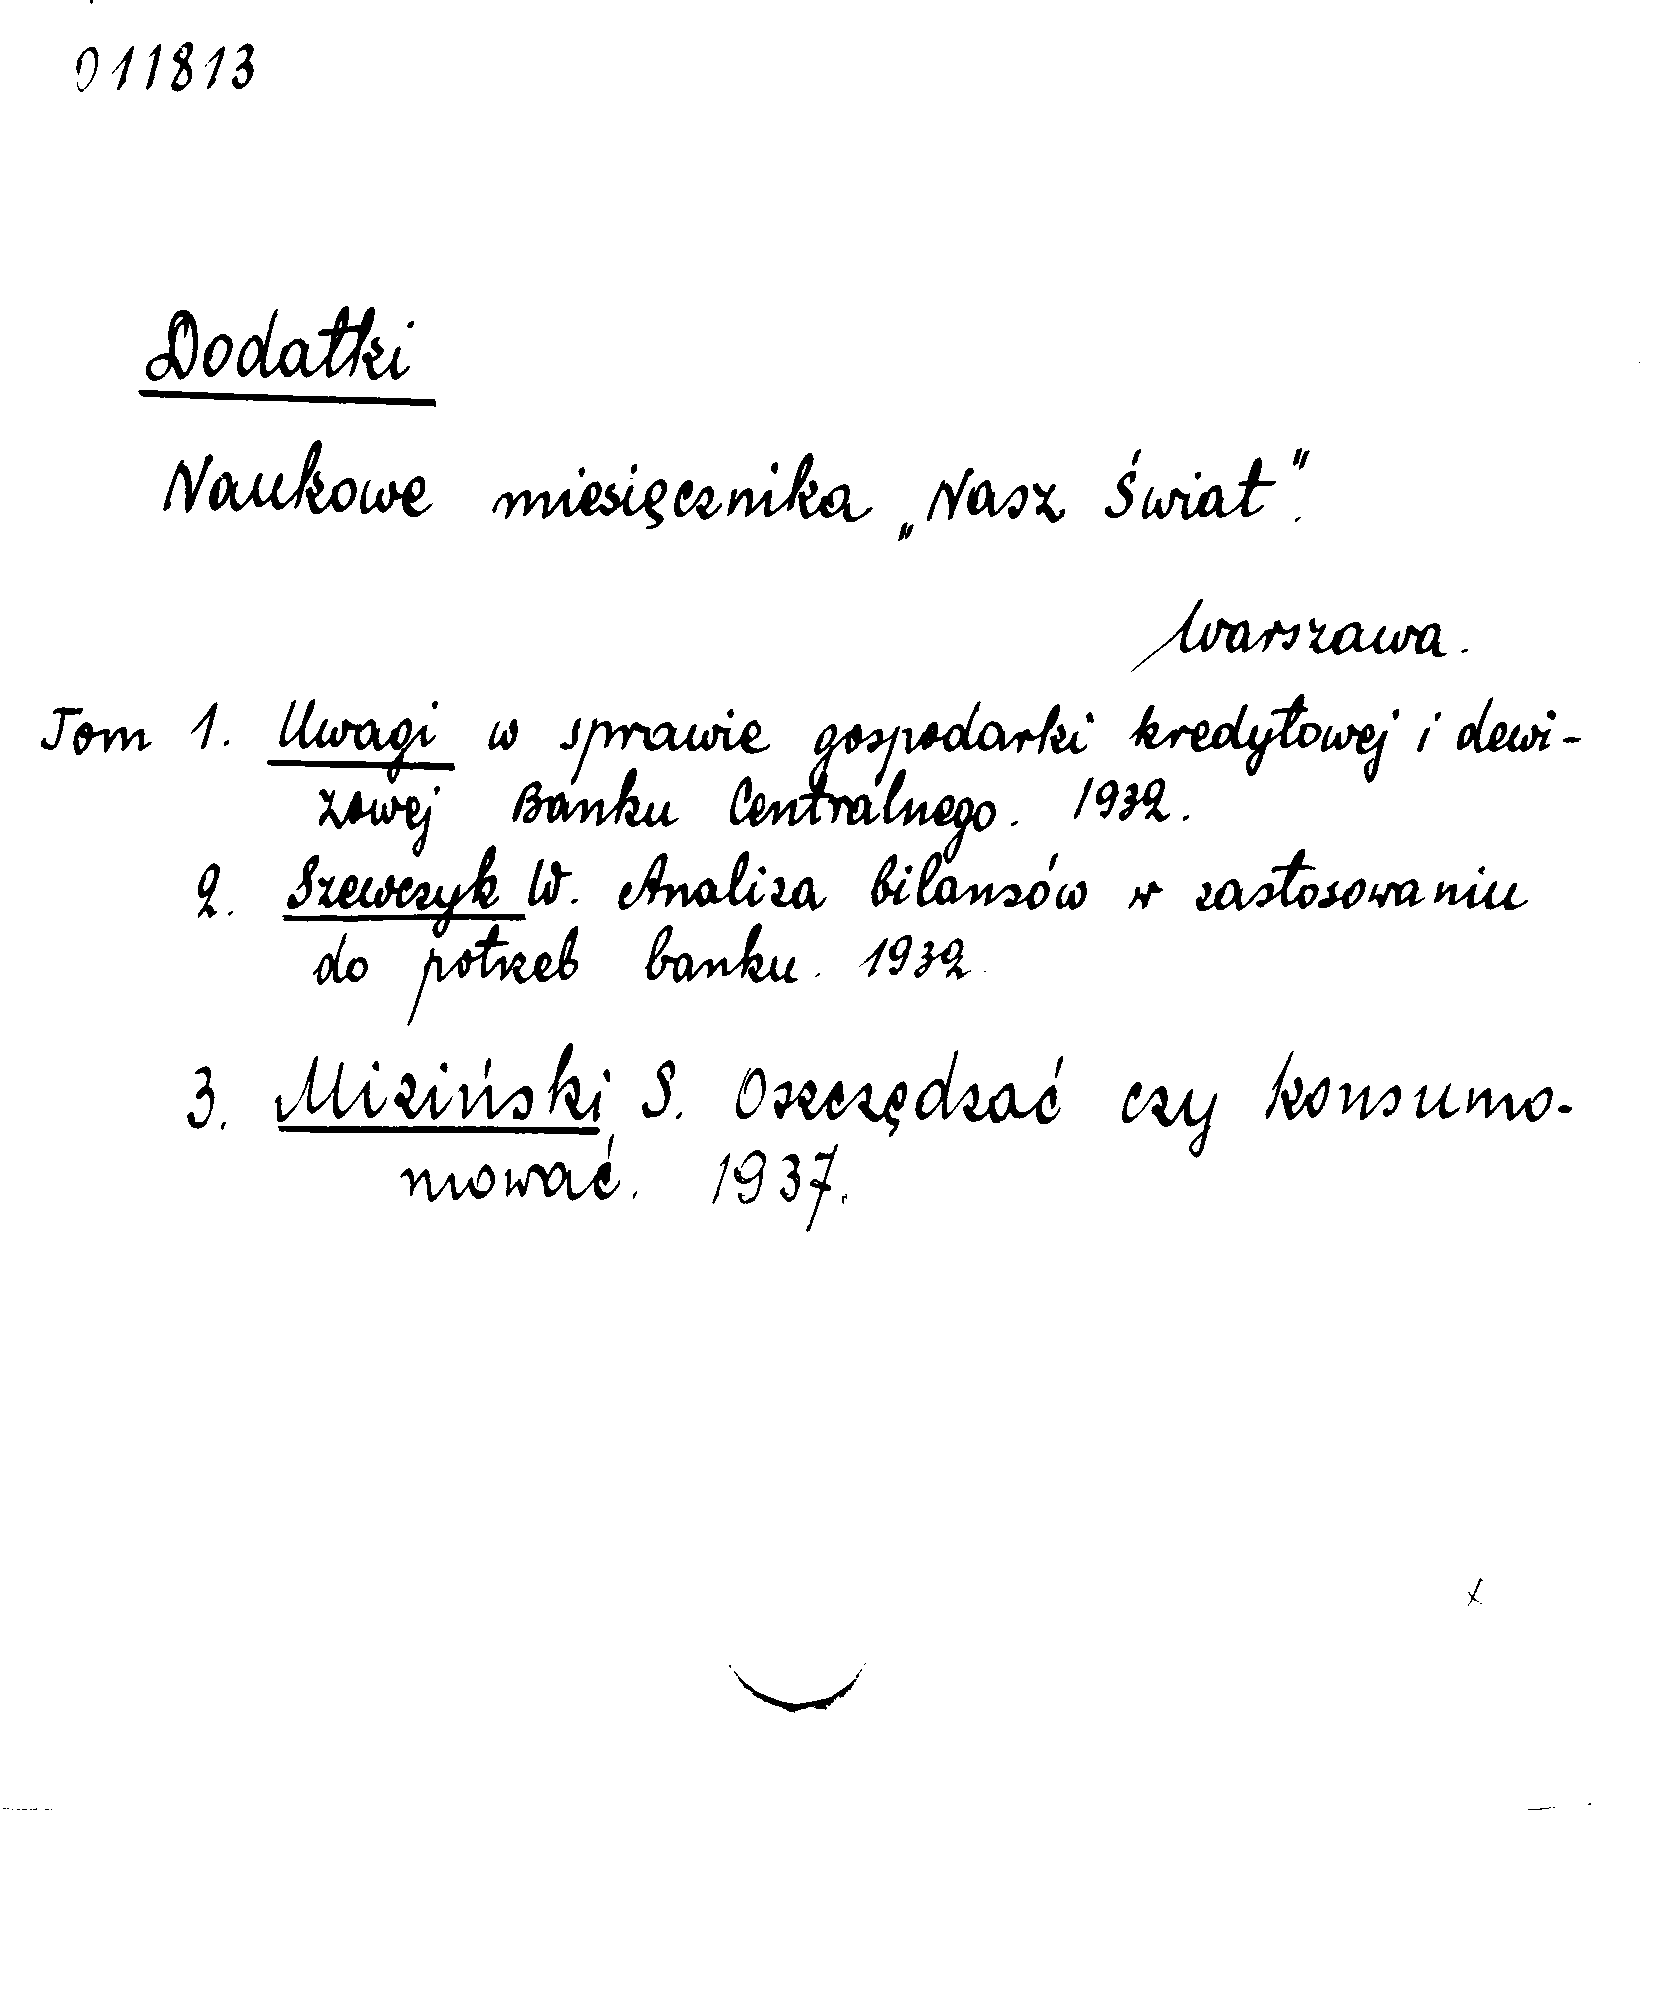 011813
Dodatki
Naukowe miesięcznika „Nasz Świat”.
Warszawa.
Tom 1. Uwagi w sprawie gospodarki kredytowej i dewi-
zowej Banku Centralnego. 1932.
2. Szewczyk W. Analiza bilansów w zastosowaniu
do potrzeb banku. 1932.
3. Miziński S. Oszczędzać czy konsumo-
mować. 1937.
x